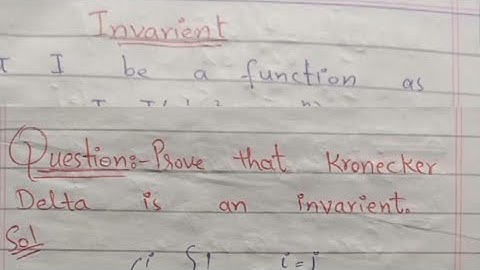 Invarient
I be a function as
Question:- Prove that Kronecker
Delta is an invarient.
Sol
i=j